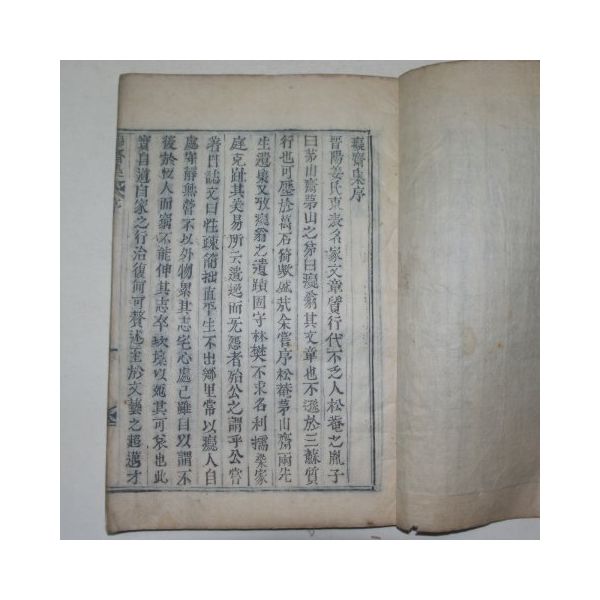 癡齋集序
晋陽姜氏東表名家文章質行代不乏人松菴之胤子
曰茅山齋茅山之弟曰癡翁其文章也不遜於三蘇質
行也可歷於萬石猗歟盛哉余嘗序松菴茅山齋兩先
生遺集又攷癡翁之遺蹟固守林樊不求名利擩染家
庭克趾其美易所云遺逸而无怨者殆公之謂乎公嘗
著自誌文曰性疎簡拙直平生不出鄉里常以癡人自
處寧靜無營不以外物累其志宅心處己雖自以謂不
後於人而窮不能伸其志卒坎壈以死其可哀也此
實自道自家之行治復何可贅述至於文藝之超邁才
齋集 序